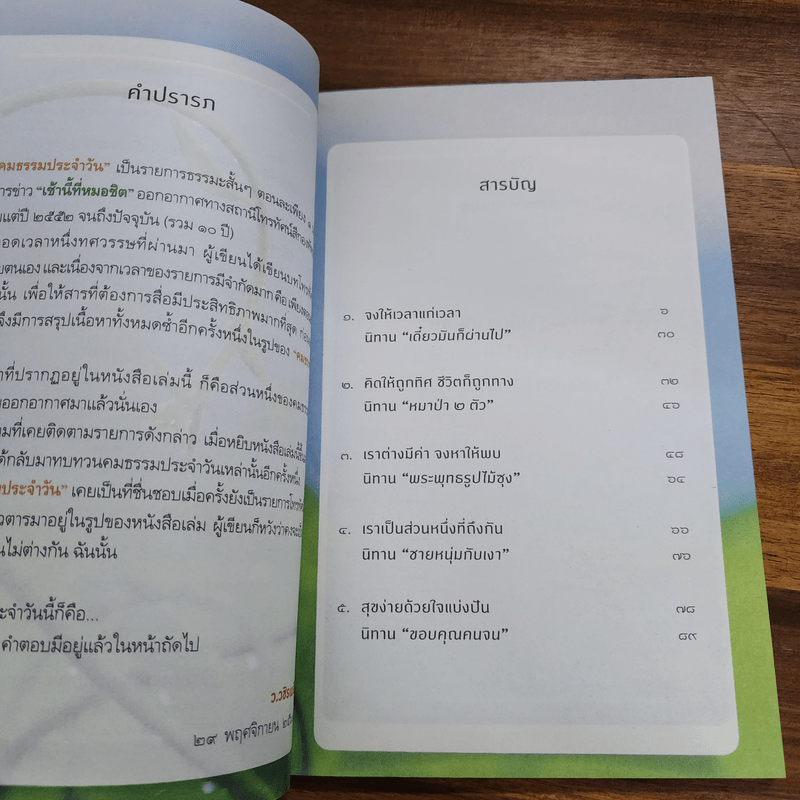 คำปรารภ
คมธรรมประจำวัน” เป็นรายการธรรมะสั้นๆ ตอนละเพียง ๑
การข่าว “เช้านี้ที่หมอชิต” ออกอากาศทางสถานีโทรทัศน์สีกองทัพ
แต่ปี ๒๕๕๒ จนถึงปัจจุบัน (รวม ๑๐ ปี)
อดเวลาหนึ่งทศวรรษที่ผ่านมา ผู้เขียนได้เขียนบทโทรทัศน์
ยตนเอง และเนื่องจากเวลาของรายการมีจำกัดมาก คือเพียง
นั้น เพื่อให้สารที่ต้องการสื่อมีประสิทธิภาพมากที่สุด ก่อน
จึงมีการสรุปเนื้อหาทั้งหมดซ้ำอีกครั้งหนึ่งในรูปของ “คมธรรม
าที่ปรากฏอยู่ในหนังสือเล่มนี้ ก็คือส่วนหนึ่งของคมธรรม
ยออกอากาศมาแล้วนั่นเอง
านที่เคยติดตามรายการดังกล่าว เมื่อหยิบหนังสือเล่มนี้ขึ้น
ด้กลับมาทบทวนคมธรรมประจำวันเหล่านั้นอีกครั้งหนึ่ง
ประจำวัน” เคยเป็นที่ชื่นชอบเมื่อครั้งยังเป็นรายการโทรทัศน์
วตารมาอยู่ในรูปของหนังสือเล่ม ผู้เขียนก็หวังว่าคงจะเป็น
นไม่ต่างกัน ฉันนั้น
ระจำวันนี้ก็คือ...
คำตอบมีอยู่แล้วในหน้าถัดไป
ว.วชิรเมธี
๒๙ พฤศจิกายน ๒๕
สารบัญ
๑. จงให้เวลาแก่เวลา ๖
นิทาน “เดี๋ยวมันก็ผ่านไป” ๓๐
๒. คิดให้ถูกทิศ ชีวิตก็ถูกทาง ๓๒
นิทาน “หมาป่า ๒ ตัว” ๔๖
๓. เราต่างมีค่า จงหาให้พบ ๔๘
นิทาน “พระพุทธรูปไม้ซุง” ๖๔
๔. เราเป็นส่วนหนึ่งที่ถึงกัน ๖๖
นิทาน “ชายหนุ่มกับเงา” ๗๖
๕. สุขง่ายด้วยใจแบ่งปัน ๗๘
นิทาน “ขอบคุณคนจน” ๘๙